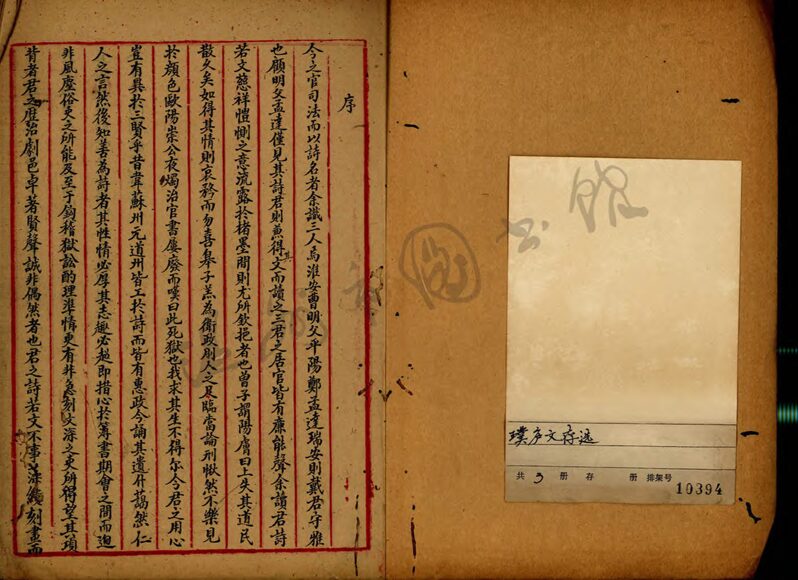 序
今之官司法而以詩名者余識三人焉淮安曹明父平陽鄭孟達瑞安則戴君守雅
也顧明父孟達僅見其詩君則兼得其文而讀之三君之居官皆有廉能聲余讀君詩
若文慈祥愷惻之意流露於楮墨間則尤所欽挹者也曾子謂陽膚曰上失其道民
散久矣如得其情則哀矜而勿喜皋子羔為衛政刖人之足臨當論刑愀然不樂見
於顏色歐陽崇公夜燭治官書屢廢而嘆曰此死獄也我求其生不得尔今君之用心
豈有異於三賢乎昔韋蘇州元道州皆工於詩而皆有惠政今誦其遺什藹然仁
人之言然後知善為詩者其性情必厚其志趣必超即措心於簿書期會之間而迥
非風塵俗吏之所能及至于鉤稽獄訟酌理準情更有非急刻文深之吏所得望其項
昔者君之歷治劇邑卓著賢聲誠非偶然者也君之詩若文不事 深 刻畫而
書館
璞庐文存选
共 3 册 存 册 排架号
10394